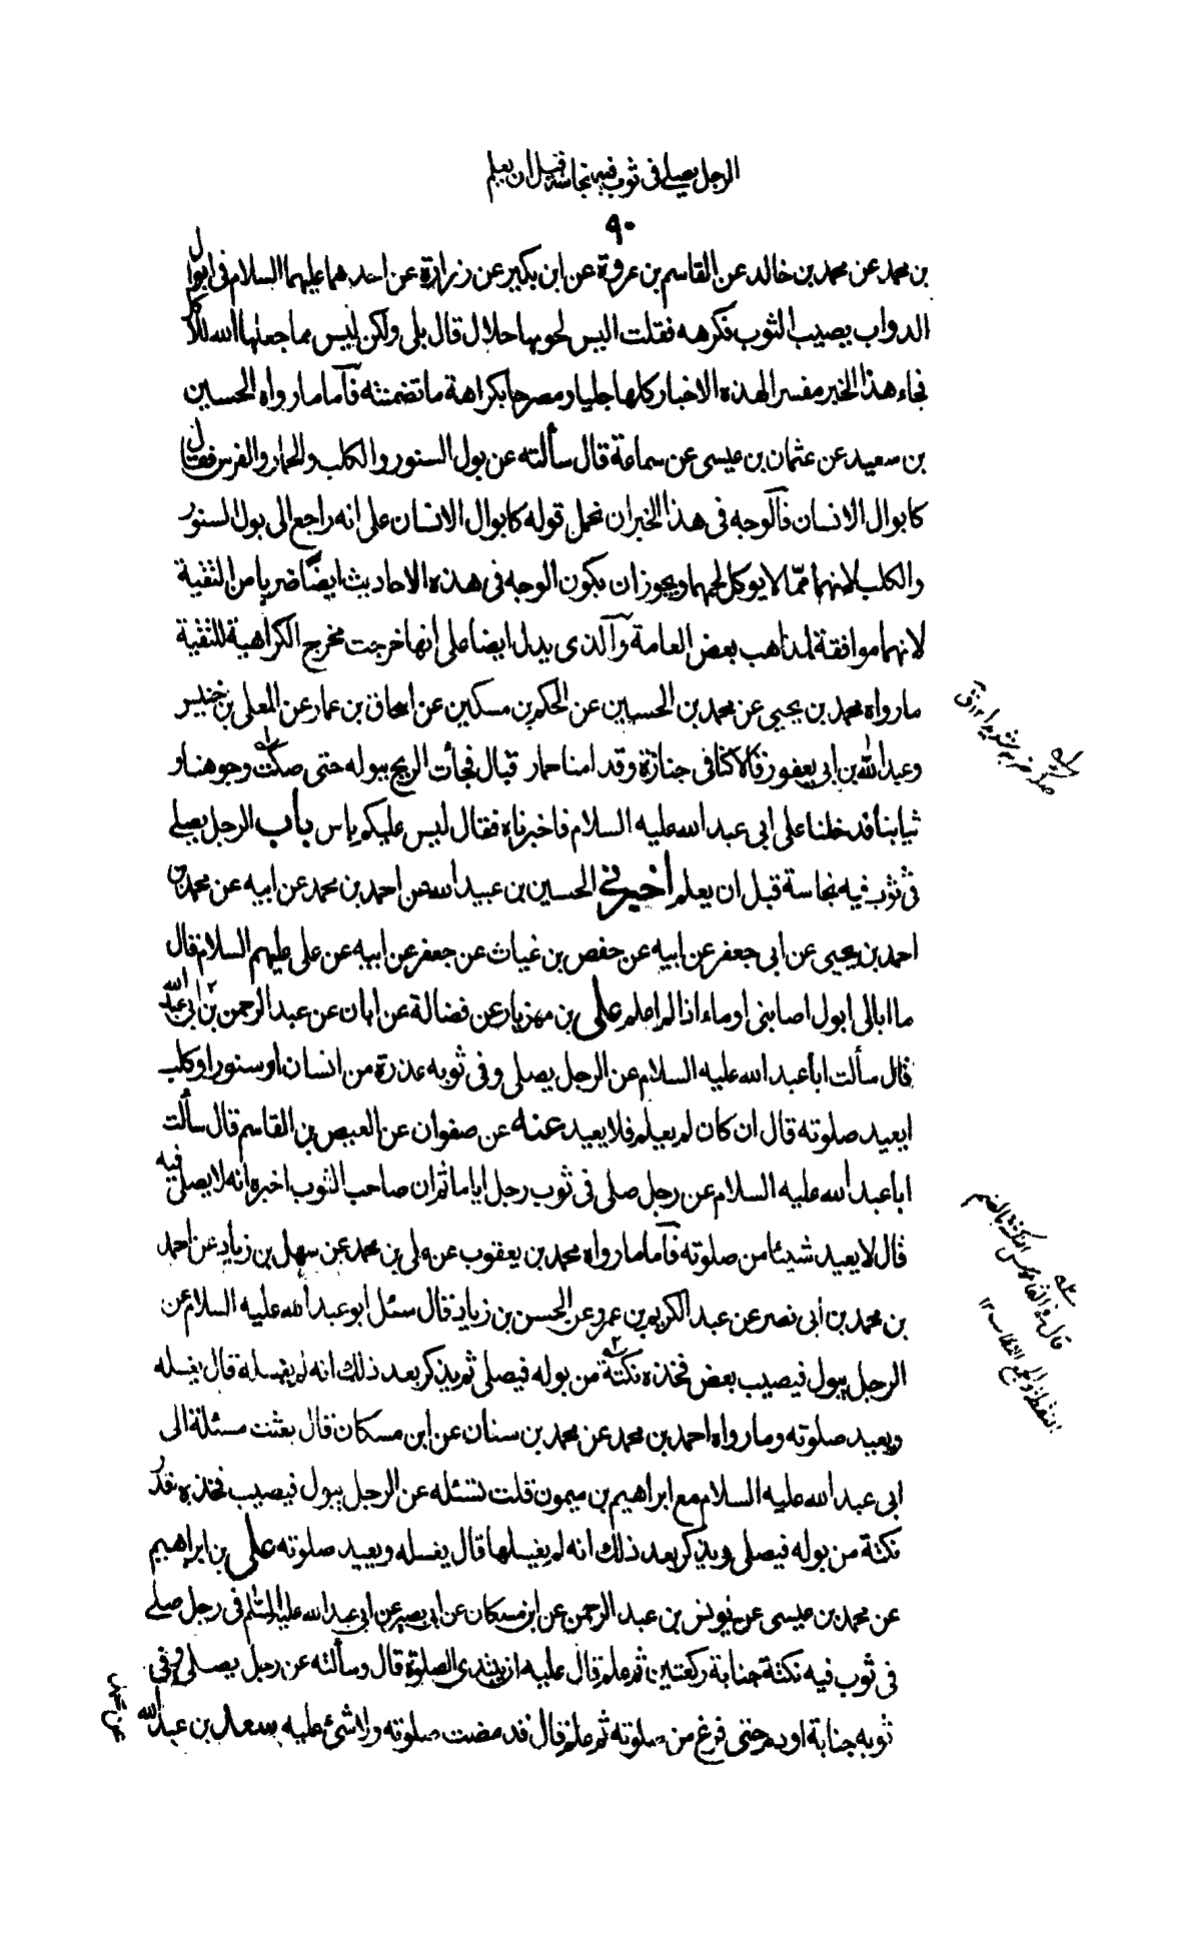 الرجل يصلي في ثوب فيه نجاسة قبل ان يعلم
٩٠
بن محمد عن محمد بن خالد عن القاسم بن عروة عن ابن بكير عن زرارة عن احدهما عليهما السلام في ابوال
الدواب يصيب الثوب فكرهه فقلت اليس لحومها حلال قال بلى ولكن ليس مما جعلها الله للاكل
فجاء هذا الخبر مفسرا لهذه الاخبار كلها جليا ومصرحا بكراهة ما تضمنته فآما ما رواه الحسين
بن سعيد عن عثمان بن عيسى عن سماعة قال سألته عن بول السنور والكلب والحمار والفرس فقال
كابوال الانسان فآلوجه في هذا الخبر ان نحمل قوله كابوال الانسان على انه راجع الى بول السنور
والكلب لانهما ممّا لا يوكل لحمهما ويجوز ان يكون الوجه في هذه الاحاديث ايضًا ضربا من التقية
لانهما موافقة لمذاهب بعض العامة وآلذى يدل ايضا على انها خرجت مخرج الكراهية للتقية
ما رواه محمد بن يحيى عن محمد بن الحسين عن الحكم بن مسكين عن اسحاق بن عمار عن المعلى بن خنيس
وعبد الله بن ابي يعفور قالا كنا في جنازة وقد امنا حمار قبال فجأت الريح ببوله حتى صكت وجوهنا و
ثيابنا فدخلنا على ابي عبد الله عليه السلام فاخبرناه فقال ليس عليكم باس باب الرجل يصلي
في ثوب فيه نجاسة قبل ان يعلم اخبرني الحسين بن عبيد الله عن احمد بن محمد عن ابيه عن محمد بن
احمد بن يحيى عن ابي جعفر عن ابيه عن حفص بن غياث عن جعفر عن ابيه عن علي عليهم السلام قال
ما ابالى ابول اصابنى او ماء اذا لم اعلم على بن مهزيار عن فضالة عن ابان عن عبد الرحمن بن ابي عبد الله
قال سألت ابا عبد الله عليه السلام عن الرجل يصلي وفي ثوبه عذرة من انسان او سنور او كلب
ايعيد صلوته قال ان كان لم يعلم فلا يعيد عنه عن صفوان عن العيص بن القاسم قال سألت
ابا عبد الله عليه السلام عن رجل صلى في ثوب رجل اياما ثم ان صاحب الثوب اخبره انه لا يصلي فيه
قال لا يعيد شيئا من صلوته فآما ما رواه محمد بن يعقوب عن على بن محمد عن سهل بن زياد عن احمد
بن محمد بن أبي نصر عن عبد الكريم بن عمرو عن الحسن بن زياد قال سئل ابو عبد الله عليه السلام عن
الرجل يبول فيصيب بعض فخذه نكتة من بوله فيصلي ثم يذكر بعد ذلك انه لم يغسله قال يغسله
ويعيد صلوته وما رواه احمد بن محمد عن محمد بن سنان عن ابن مسكان قال بعثت مسئلة الى
ابي عبد الله عليه السلام مع ابراهيم بن ميمون قلت تسئله عن الرجل يبول فيصيب فخذه قدر
نكتة من بوله فيصلي ويذكر بعد ذلك انه لم يغسلها قال يغسله ويعيد صلوته على بن ابراهيم
عن محمد بن عيسى عن يونس بن عبد الرحمن عن ابن مسكان عن ابي بصير عن ابي عبد الله عليه السلام في رجل صلى
في ثوب فيه نكتة جنابة ركعتين ثم علم قال عليه ان يبتدى الصلوة قال وسألته عن رجل يصلي وفي
ثوبه جنابة او دم حتى فرغ من صلوته ثم علم قال قد مضت صلوته ولا شئ عليه سعد بن عبد الله
صكه ضربه شديدا ١٢ ق
قال في القاموس النكتة بالضم
النقطة والجمع النكات ١٢